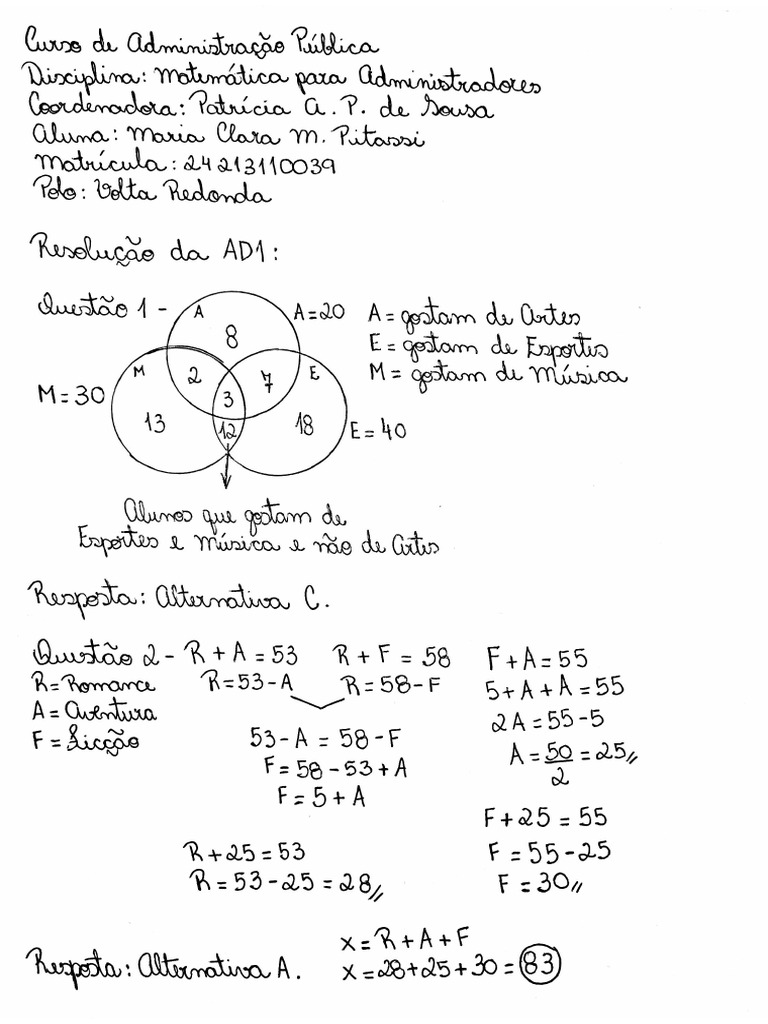 Curso de Administração Pública
Disciplina: Matemática para Administradores
Coordenadora: Patrícia A. P. de Sousa
Aluna: Maria Clara M. Pitassi
Matrícula: 24213110039
Polo: Volta Redonda
Resolução da AD1:
Questão 1 -
A
8
A = 20
A = gostam de Artes
E = gostam de Esportes
M = gostam de Música
M = 30
M
2
7
E
3
13
12
18
E = 40
Alunos que gostam de
Esportes e Música e não de Artes
Resposta: Alternativa C.
Questão 2 - R + A = 53
R = 53 - A
R + F = 58
R = 58 - F
R = Romance
A = Aventura
F = Ficção
53 - A = 58 - F
F = 58 - 53 + A
F = 5 + A
F + A = 55
5 + A + A = 55
2A = 55 - 5
A = 50/2 = 25//
F + 25 = 55
F = 55 - 25
F = 30//
R + 25 = 53
R = 53 - 25 = 28//
Resposta: Alternativa A.
x = R + A + F
x = 28 + 25 + 30 = 83